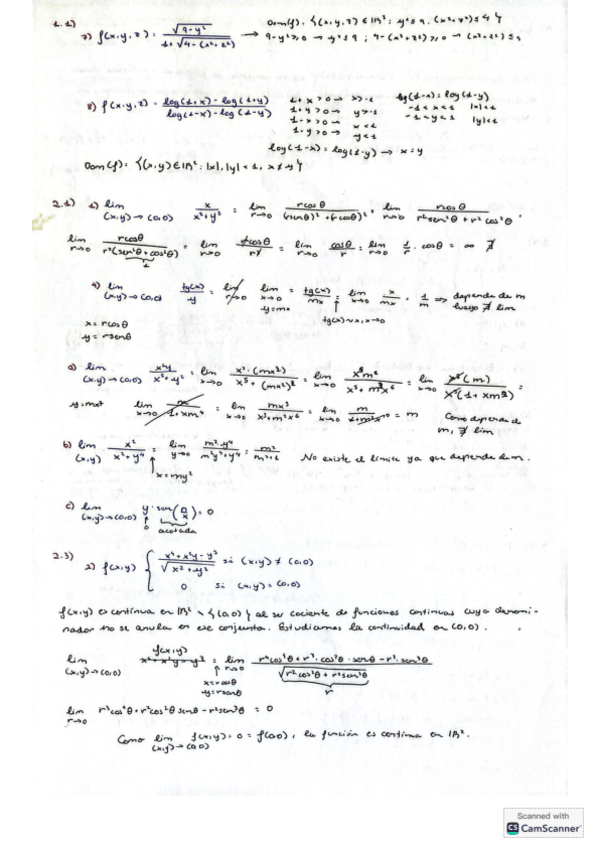 1.1)
7) f(x,y,z) = √(9-y²) / (1+√(4-(x²+z²))) → Dom(f): {(x,y,z) ∈ ℝ³ : y² ≤ 9, (x²+z²) ≤ 4}
9-y² ≥ 0 → y² ≤ 9 ; 4-(x²+z²) ≥ 0 → (x²+z²) ≤ 4
8) f(x,y,z) = (log(1+x) - log(1+y)) / (log(1-x) - log(1-y))
1+x > 0 → x > -1
1+y > 0 → y > -1
1-x > 0 → x < 1
1-y > 0 → y < 1
log(1-x) = log(1-y)
-1 < x < 1 |x| < 1
-1 < y < 1 |y| < 1
log(1-x) = log(1-y) → x = y
Dom(f): {(x,y) ∈ ℝ² : |x|,|y| < 1, x ≠ y}
2.1)
lim (x,y)→(0,0) x/(x²+y²) = lim r→0 rcosθ/((rsenθ)²+(rcosθ)²) = lim r→0 rcosθ/(r²sen²θ+r²cos²θ) =
lim r→0 rcosθ/(r²(sen²θ+cos²θ)) = lim r→0 rcosθ/r² = lim r→0 cosθ/r = lim r→0 1/r · cosθ = ∞ ∄
1
lim (x,y)→(0,0) tg(x)/y = lim r→0 lim x→0 y=mx = tg(x)/mx = lim x→0 x/mx · 1/m ⇒ depende de m luego ∄ lim
tg(x)~x, x→0
x = rcosθ
y = rsenθ
a) lim (x,y)→(0,0)
y=mx²
Como depende de m, ∄ lim
b) lim (x,y) x²/(x²+y⁴) = lim y→0 m²y⁴/(m²y⁴+y⁴) = m²/(m²+1) No existe el límite ya que depende de m.
x=my²
c) lim (x,y)→(0,0) y·sen = 0
0 acotada
2.3)
2) f(x,y) { (x⁴+x²y-y³)/√(x²+y²) si (x,y) ≠ (0,0)
0 si (x,y) = (0,0)
f(x,y) es continua en ℝ² \ {(0,0)} al ser cociente de funciones continuas cuyo denomi-
nador no se anula en ese conjunto. Estudiamos la continuidad en (0,0).
lim (x,y)→(0,0) f(x,y) = lim r→0 (r⁴cos⁴θ+r³·cos²θ·senθ-r³·sen³θ)/√(r²cos²θ+r²sen²θ)
x=rcosθ
y=rsenθ
r
lim r→0 r³cos⁴θ+r²cos²θ senθ-r²sen³θ = 0
Como lim (x,y)→(0,0) f(x,y) = 0 = f(0,0), la función es continua en ℝ².
Scanned with
CS CamScanner